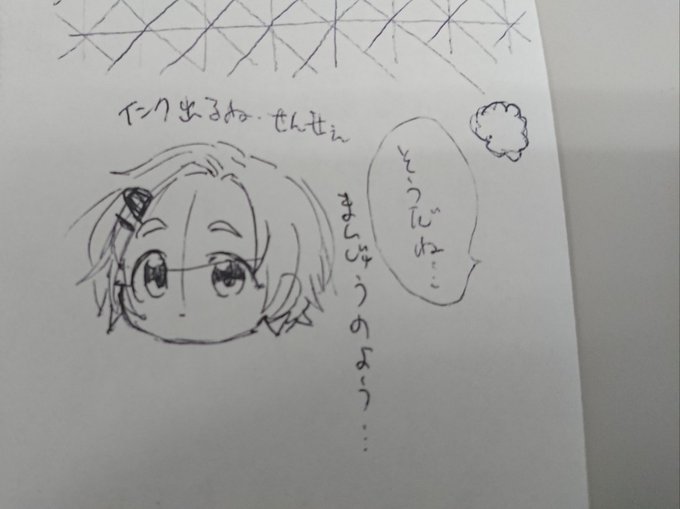 インク出るね・せんせぇ
そうだね…
まんじゅうのよう…